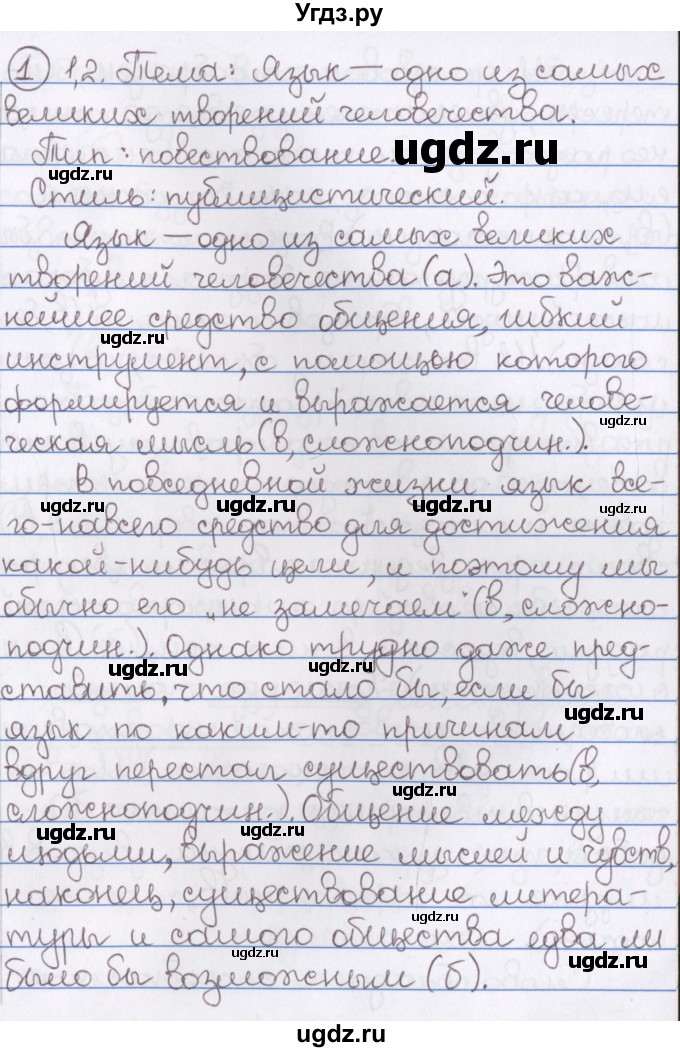 Угдз.ру
① 1,2. Тема: Язык — одно из самых
великих творений человечества.
Тип: повествование.
Стиль: публицистический.
Язык — одно из самых великих
творений человечества (а). Это важ-
нейшее средство общения, гибкий
инструмент, с помощью которого
формируется и выражается челове-
ческая мысль (в, сложноподчин.).
В повседневной жизни язык все-
го-навсего средство для достижения
какой-нибудь цели, и поэтому мы
обычно его „не замечаем“ (в, сложно-
подчин.). Однако трудно даже пред-
ставить, что стало бы, если бы
язык по каким-то причинам
вдруг перестал существовать (в,
сложноподчин.). Общение между
людьми, выражение мыслей и чувств,
наконец, существование литера-
туры и самого общества едва ли
было бы возможным (б).
ugdz.ru